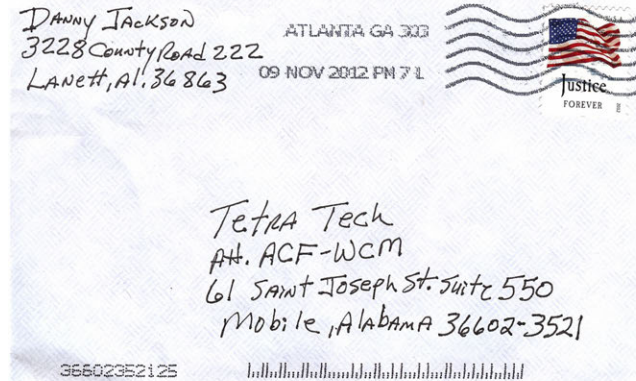 Danny Jackson
3228 County Road 222
Lanett, Al. 36863
ATLANTA GA 303
09 NOV 2012 PM 7 L
Justice
FOREVER
Tetra Tech
Att. ACF-WCM
61 Saint Joseph St. Suite 550
Mobile, Alabama 36602-3521
36602352125